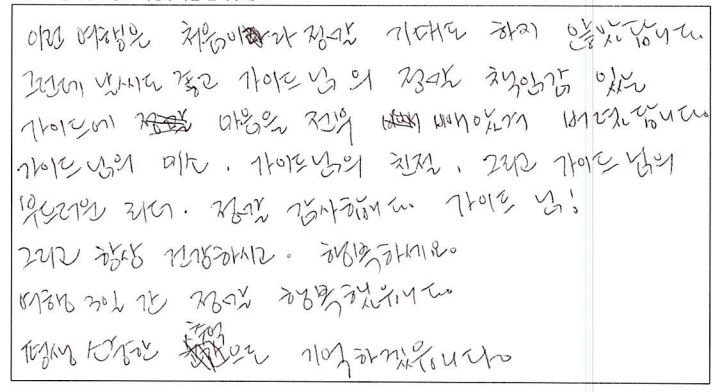 이런 여행은 처음이라 정말 기대도 하지 않았답니다.
그런데 날씨도 좋고 가이드님의 정말 책임감 있는
가이드에 마음을 전부 빼앗겨 버렸답니다.
가이드님의 미소. 가이드님의 친절. 그리고 가이드님의
부드러운 리더. 정말 감사합니다. 가이드님!
그리고 항상 건강하시고. 행복하세요.
여행 3일간 정말 행복했습니다.
평생 소중한 추억으로 기억하겠습니다.